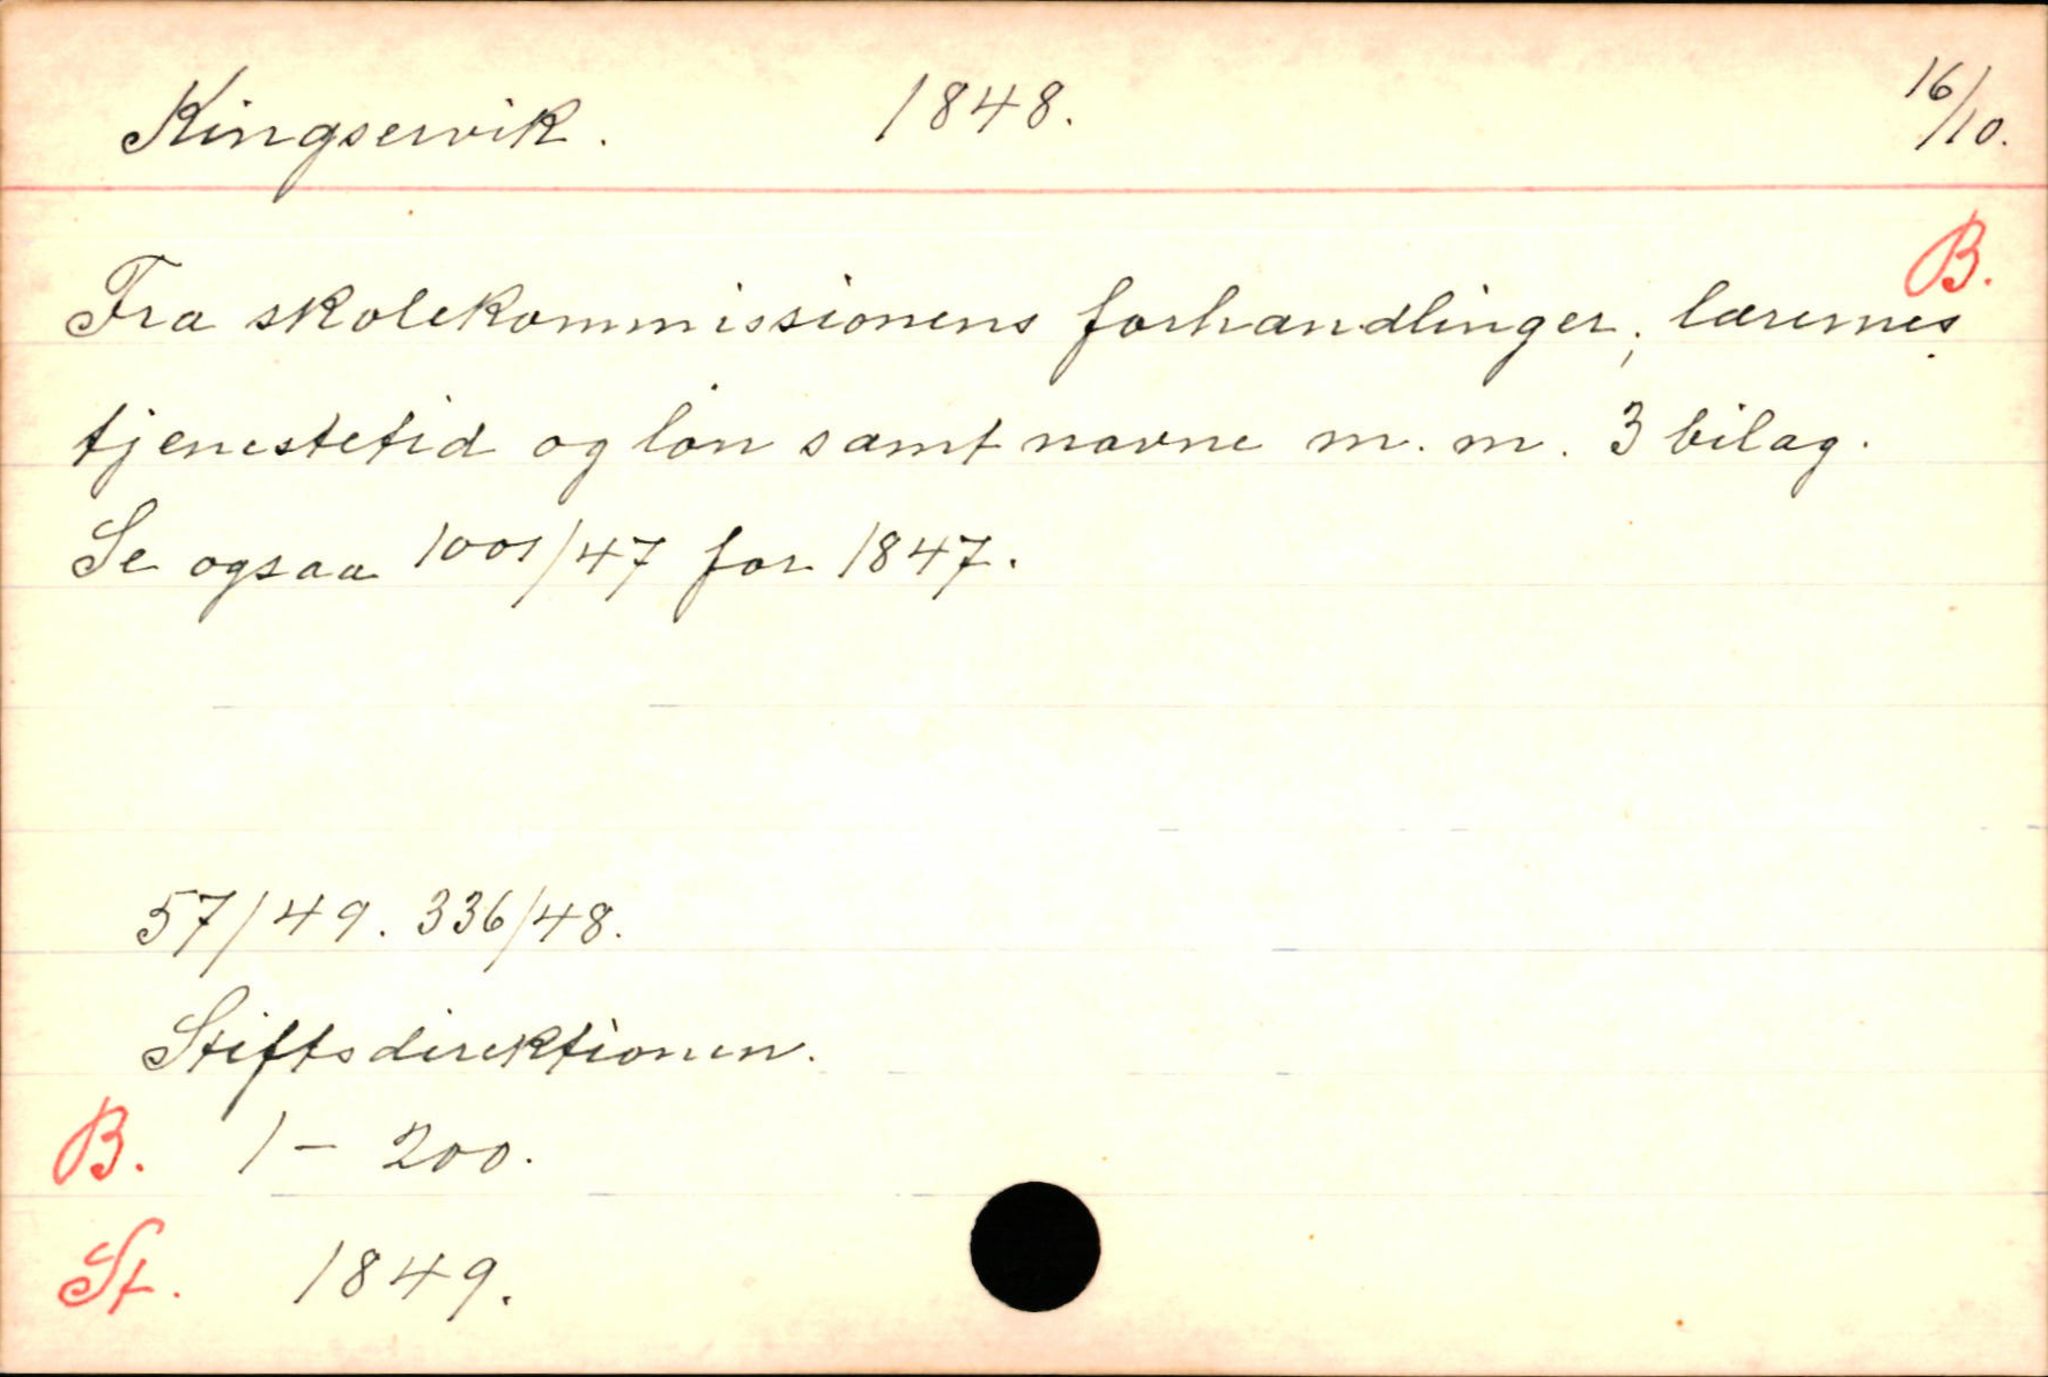 Kingservik. 1848. 16/10.
B.
Fra skolekommissionens forhandlinger; lærernes
tjenestetid og løn samt navne m. m. 3 bilag.
Se ogsaa 1001/47 for 1847.
57/49. 336/48.
Stiftsdirektionen.
B. 1 - 200.
St. 1849.